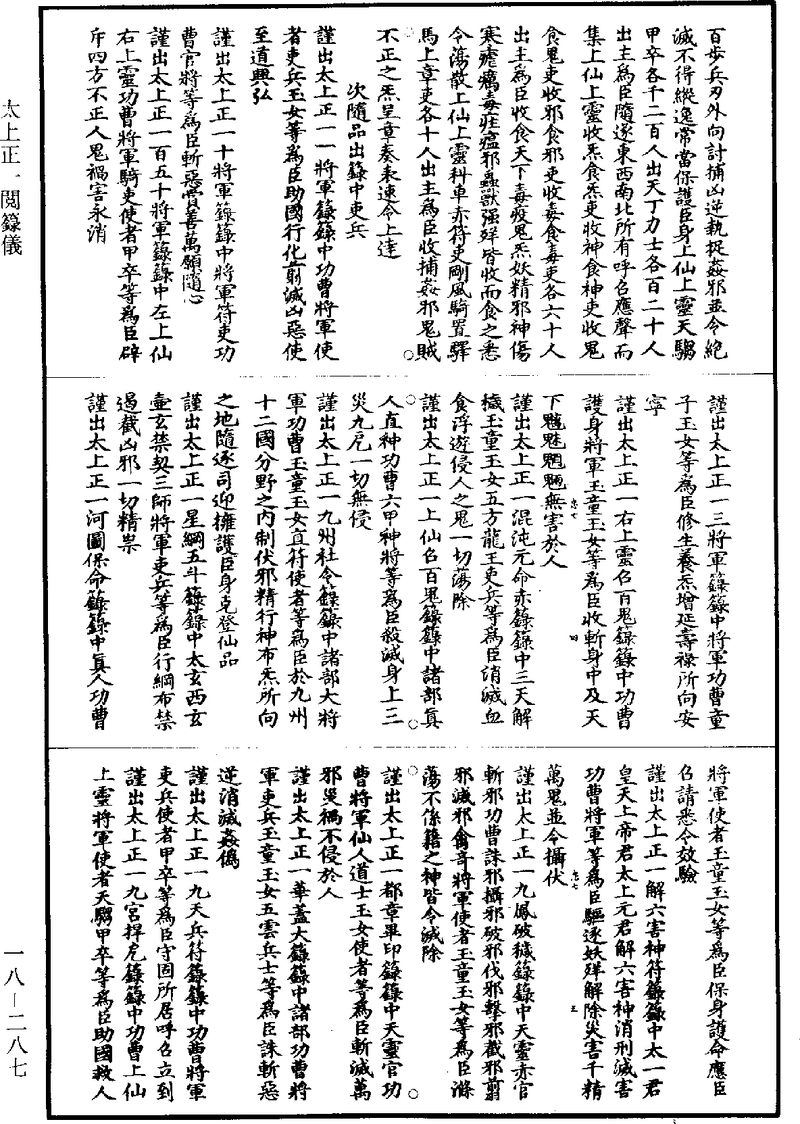 百步兵刃外向討捕凶逆執捉姦邪並令絕
滅不得縱逸常當保護臣身上仙上靈天騶
甲卒各千二百人出天丁力士各百二十人
出主為臣隨逐東西南北所有呼召應聲而
集上仙上靈收炁食炁吏收神食神吏收鬼
食鬼吏收邪食邪吏收毒食毒吏各六十人
出主為臣收食天下毒疫鬼炁妖精邪神傷
寒瘧癘毒疰瘟邪蟲獸殭殃皆收而食之悉
令蕩散上仙上靈科車赤符吏剛風騎置驛
馬上章吏各十人出主為臣收捕姦邪鬼賊
不正之炁呈章奏表速令上達
次隨品出籙中吏兵
謹出太上正一一將軍籙籙中功曹將軍使
者吏兵玉女等為臣助國行化翦滅凶惡使
至道興弘
謹出太上正一十將軍籙籙中將軍符吏功
曹官將等為臣斬惡賞善萬願隨心
謹出太上正一百五十將軍籙籙中左上仙
右上靈功曹將軍騎吏使者甲卒等為臣辟
斥四方不正人鬼禍害永消
謹出太上正一三將軍籙籙中將軍功曹童
子玉女等為臣修生養炁增延壽祿所向安
寧
謹出太上正一右上靈召百鬼籙籙中功曹
護身將軍玉童玉女等為臣收斬身中及天
下魑魅魍魎無害於人
謹出太上正一混沌元命赤籙籙中三天解
穢玉童玉女五方龍王吏兵等為臣消滅血
食浮遊侵人之鬼一切蕩除
謹出太上正一上仙召百鬼籙籙中諸部真
人直神功曹六甲神將等為臣殺滅身上三
災九厄一切無侵
謹出太上正一九州社令籙籙中諸部大將
軍功曹玉童玉女直符使者等為臣於九州
十二國分野之內制伏邪精行神布炁所向
之地隨逐司迎擁護臣身克登仙品
謹出太上正一星綱五斗籙籙中太玄西玄
壼玄禁契三師將軍吏兵等為臣行綱布禁
遏截凶邪一切精祟
謹出太上正一河圖保命籙籙中真人功曹
將軍使者玉童玉女等為臣保身護命應臣
召請悉令效驗
謹出太上正一解六害神符籙籙中太一君
皇天上帝君太上元君解六害神消刑滅害
功曹將軍等為臣驅逐妖殃解除災害千精
萬鬼並令攝伏
謹出太上正一九鳳破穢籙籙中天靈赤官
斬邪功曹誅邪攝邪破邪伐邪擊邪截邪翦
邪滅邪禽奇將軍使者玉童玉女等為臣滌
蕩不係籍之神皆令滅除
謹出太上正一都章畢印籙籙中天靈官功
曹將軍仙人道士玉女使者等為臣斬滅萬
邪災禍不侵於人
謹出太上正一華蓋大籙籙中諸部功曹將
軍吏兵玉童玉女五雲兵士等為臣誅斬惡
逆消滅姦偽
謹出太上正一九天兵符籙籙中功曹將軍
吏兵使者甲卒等為臣守固所居呼召立到
謹出太上正一九宮捍厄籙籙中功曹上仙
上靈將軍使者天騶甲卒等為臣助國救人
太上正一閱籙儀
一八—二八七